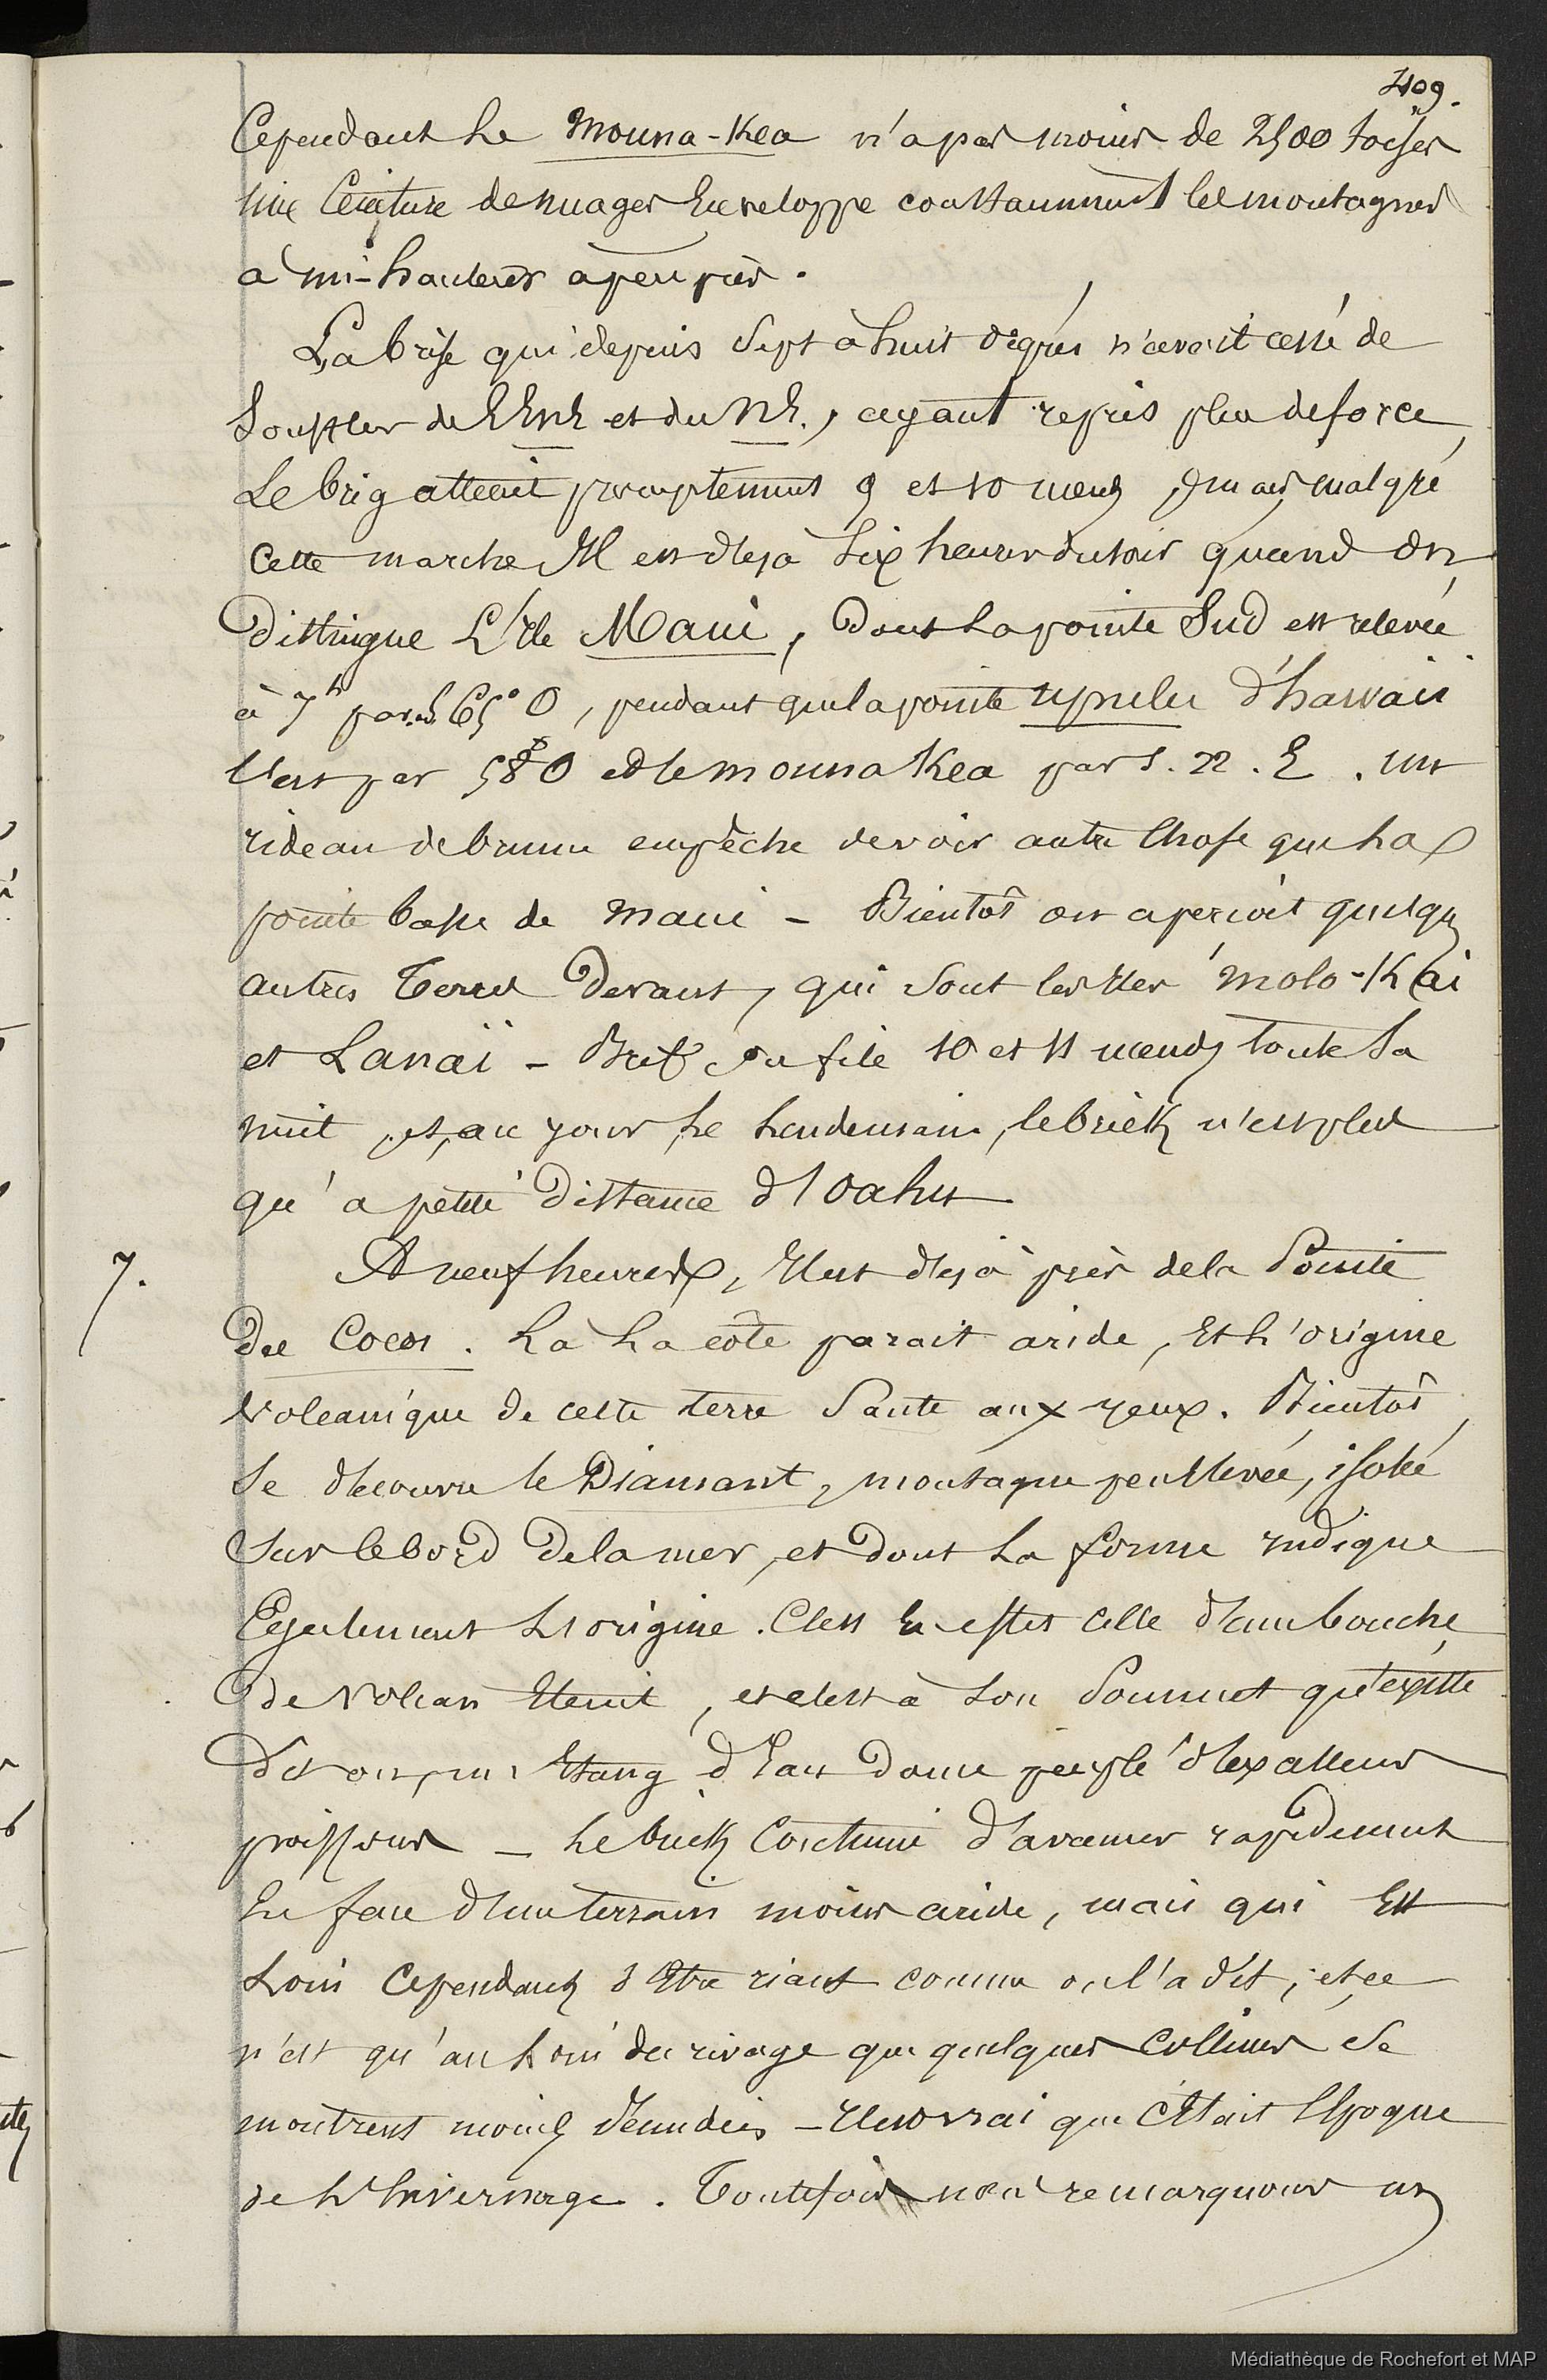 409.
Cependant le Mouna-Kea n'a pas moins de 2500 toises
une Ceinture de nuages Enveloppe constamment les montagnes
à mi-hauteur à peu près.
La brise qui depuis Sept à huit dégrés n'avait cessé de
Souffler de l'ENE et du NE., ayant repris plus de force,
Le brig atteint promptement 9 et 10 nœuds, mais, malgré
Cette marche Il est déja Six heures du soir quand on
Distingue L'Ile Maui, Dont la pointe Sud est relevée
à 7h par S 65° O, pendant que la pointe d'hawaii
l'est par S 8° O et le mouna Kea par S. 22. E. un
rideau de brume empêche de voir autre Chose que la
pointe basse de Maui - Bientôt on aperçoit quelqs
autres Terres Devant, qui Sont les Iles Molo-Kai
et Lanaï - Bref on file 10 et 11 nœuds toute la
nuit, et, au jour, le lendemain, le brick n'est plus
qu'à petite Distance d'Oahu
7.
A neuf heures, Il est déjà près de la Pointe
des Cocos. Là La côte parait aride, Et L'origine
Volcanique de cette terre Saute aux yeux. Bientôt,
Se découvre le Diamant, montagne peu élevée, isolée
Sur le bord De la mer, et Dont La forme indique
Egalement L'origine. C'est En effet celle d'une bouche
De Volcan Eteint, et c'est à Son Sommet qu'existe
Dit on, un Etang d'Eau Douce peuplé d'excellens
poissons - Le brick Continue d'avancer rapidement
En face d'un terrain moins aride, mais qui Est
Loin Cependant d'Etre riant comme on l'a dit, et ce
n'est qu'au Loin du rivage que quelques Collines Se
montrent moins dénudées - Il est vrai que c'Etait l'Epoque
de L'hivernage. Toutefois nous remarquons un
Médiathèque de Rochefort et MAP